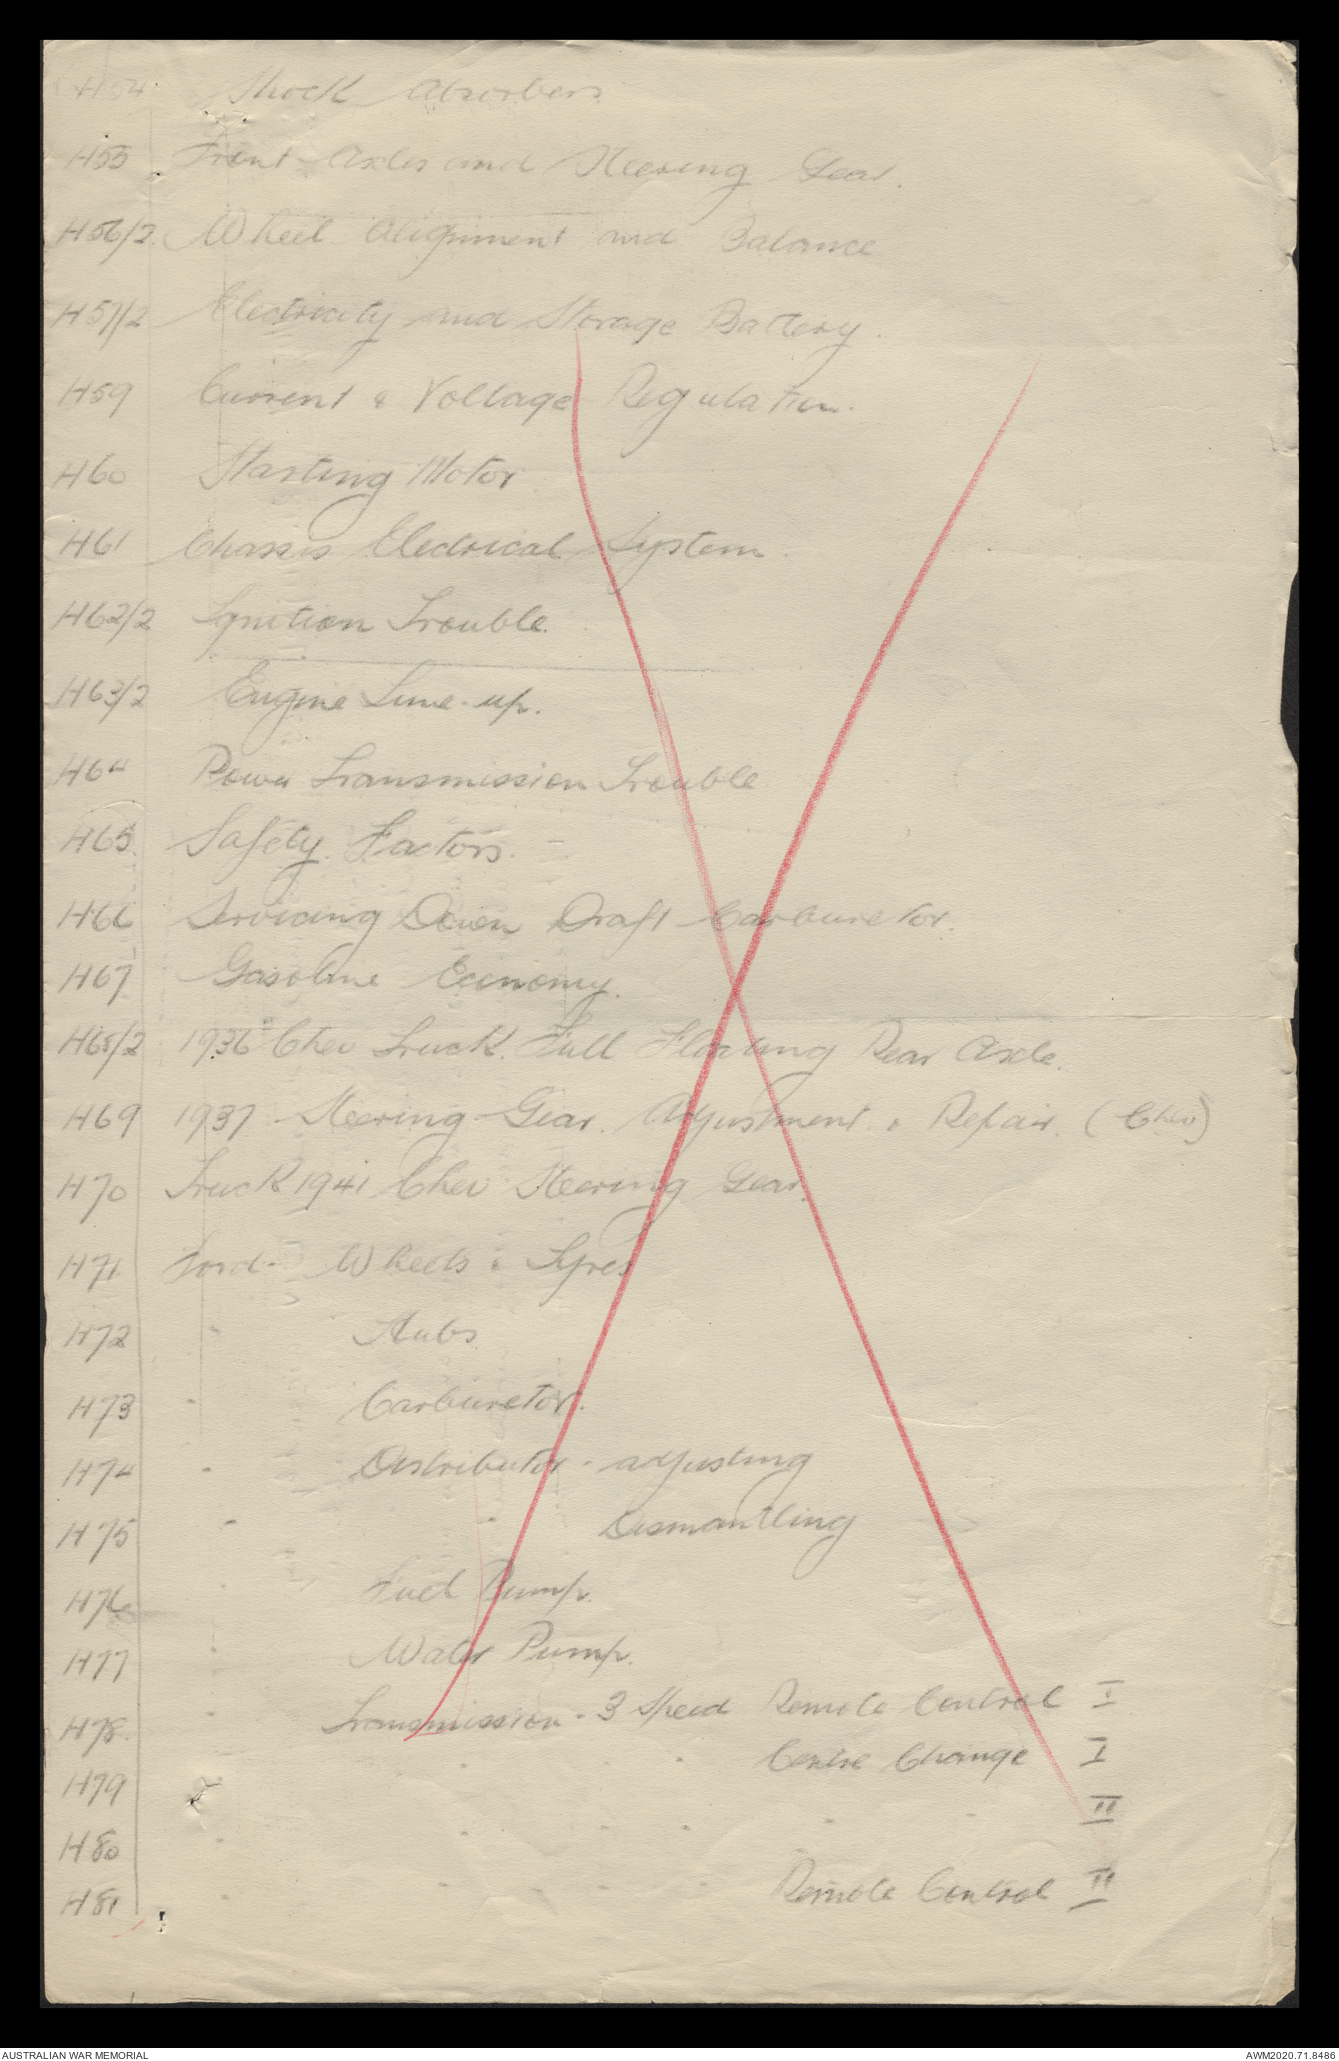 H54 Shock Absorbers
H55 Front Axles and Steering Gear.
H56/2 Wheel Alignment and Balance
H57/2 Electricity and Storage Battery.
H59 Current & Voltage Regulation.
H60 Starting Motor
H61 Chassis Electrical System.
H62/2 Ignition Trouble.
H63/2 Engine Tune-up.
H64 Power Transmission Trouble
H65 Safety Factors.
H66 Servicing Down Draft Carburetor.
H67 Gasoline Economy.
H68/2 1936 Chev Truck. Full Floating Rear Axle.
H69 1937 Steering Gear. Adjustment & Repair. (Chev)
H70 Truck 1941 Chev Steering Gear.
H71 Ford - Wheels & Tyres
H72 " Hubs
H73 " Carburetor.
H74 " Distributor - adjusting
H75 " " Dismantling
H76 " Fuel Pump.
H77 " Water Pump.
H78. " Transmission - 3 Speed Remote Control I
H79 " " " Centre Change I
H80 " " " " " " " II
H81 " " " " " Remote Control II
AUSTRALIAN WAR MEMORIAL
AWM2020.71.8486